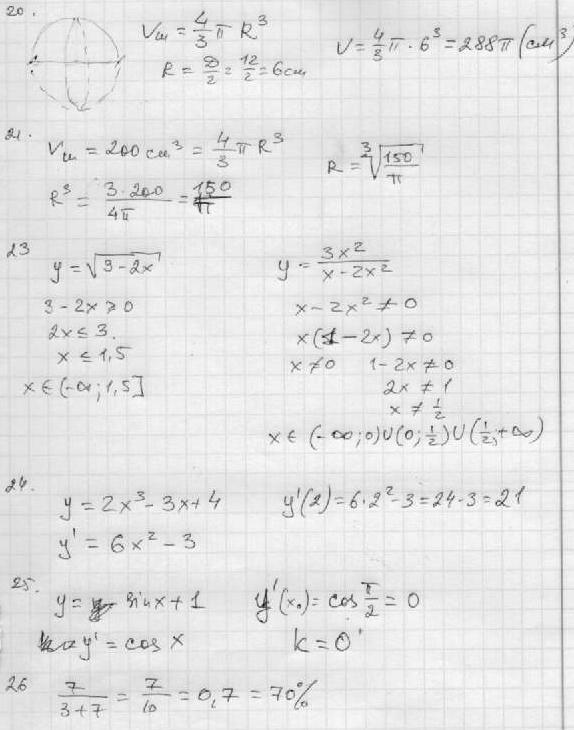 20.
Vш = 4/3 π R³
R = D/2 = 12/2 = 6 см
V = 4/3 π · 6³ = 288π (см³)
21.
Vш = 200 см³ = 4/3 π R³
R³ = 3·200/4π = 150/π
R = ∛(150/π)
23
y = √(3-2x)
3 - 2x ≥ 0
2x ≤ 3.
x ≤ 1,5
x ∈ (-∞; 1,5]
y = 3x²/(x-2x²)
x - 2x² ≠ 0
x(1-2x) ≠ 0
x ≠ 0 1-2x ≠ 0
2x ≠ 1
x ≠ 1/2
x ∈ (-∞;0)∪(0; 1/2)∪(1/2; +∞)
24.
y = 2x³ - 3x + 4
y' = 6x² - 3
y'(2) = 6·2² - 3 = 24 - 3 = 21
25.
y = sin x + 1
y' = cos x
y'(x₀) = cos π/2 = 0
k = 0
26 7/(3+7) = 7/10 = 0,7 = 70%